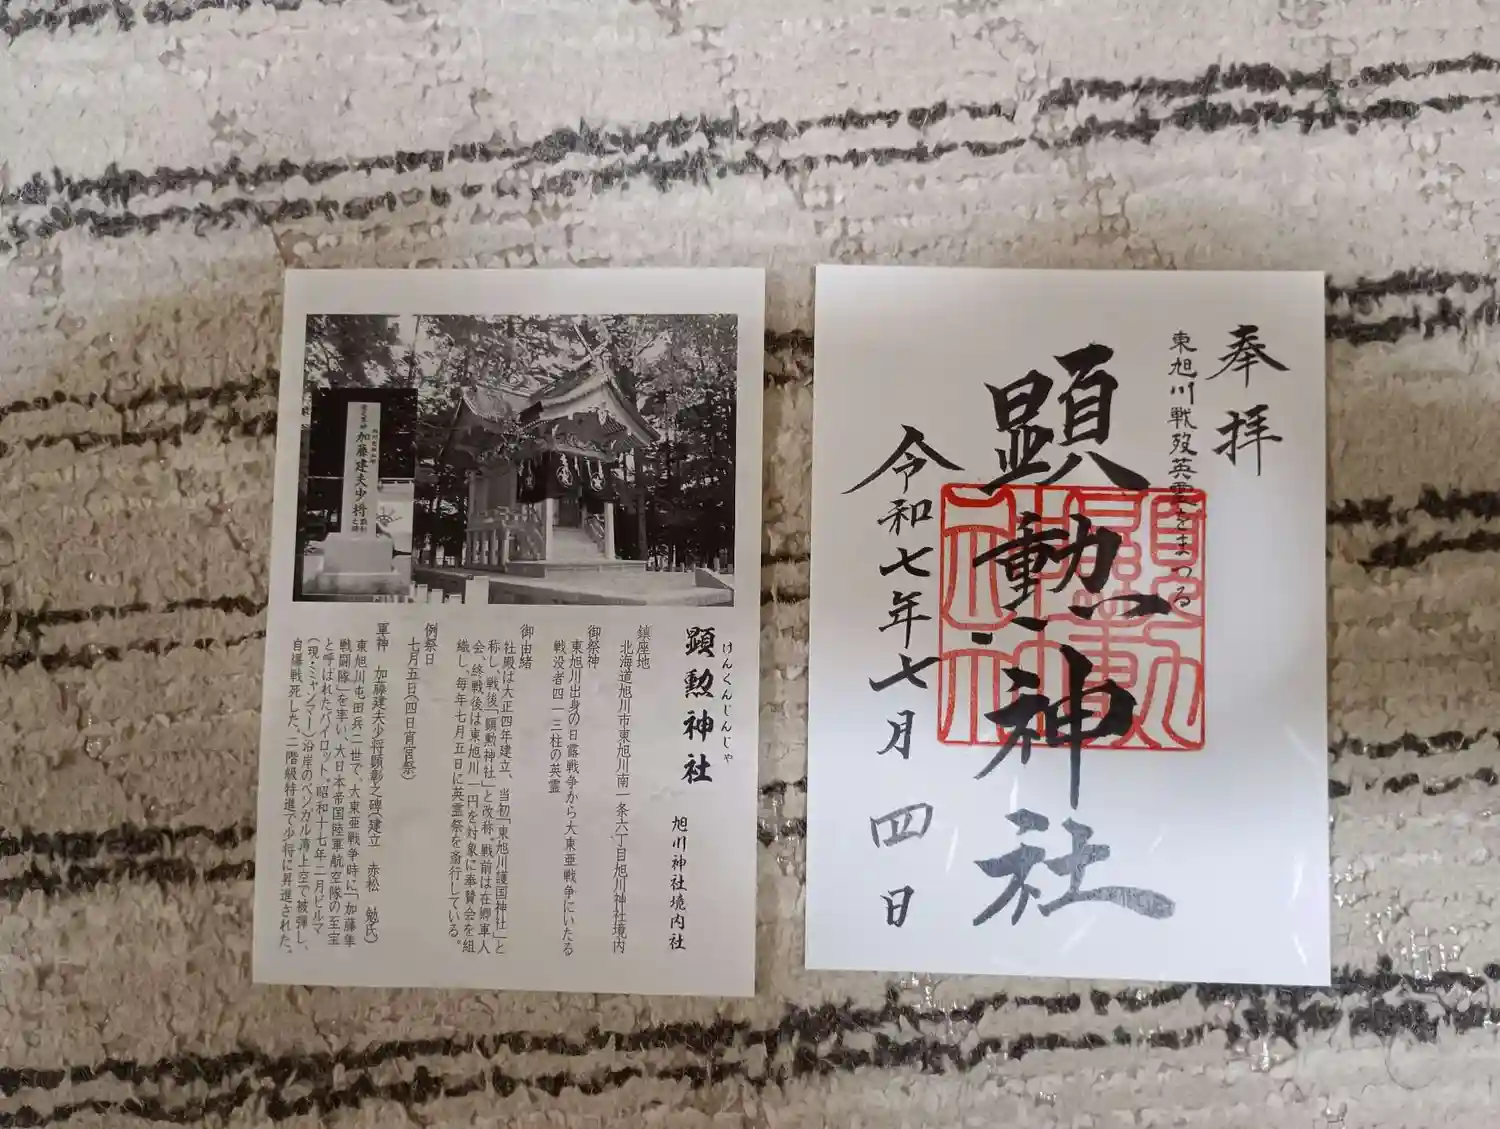 顕勲神社
けんくんじんじゃ
旭川神社境内社
鎮座地
北海道旭川市東旭川南一条六丁目旭川神社境内
御祭神
東旭川出身の日露戦争から大東亜戦争にいたる
戦没者四一三柱の英霊
御由緒
社殿は大正四年建立、当初「東旭川護国神社」と
称し、戦後「顕勲神社」と改称。戦前は在郷軍人
会、終戦後は東旭川一円を対象に奉賛会を組
織し、毎年七月五日に英霊祭を斎行している。
例祭日
七月五日(四日宵宮祭)
軍神 加藤建夫少将顕彰之碑(建立 赤松 勉氏)
東旭川屯田兵二世で、大東亜戦争時に「加藤隼
戦闘隊」を率い、大日本帝国陸軍航空隊の至宝
と呼ばれたパイロット。昭和十七年二月ビルマ
(現・ミャンマー)沿岸のベンガル湾上空で被弾し、
自爆戦死した。二階級特進で少将に昇進された。
加藤建夫少将
奉拝
東旭川戦歿英霊をまつる
顕勲神社
令和七年七月四日
顕勲神社